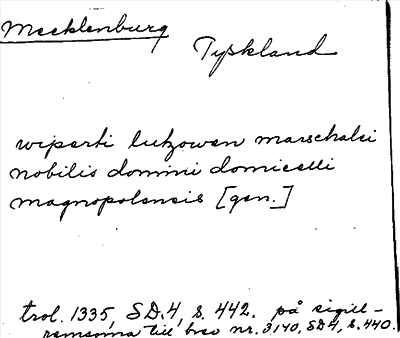 Mecklenburg
Tyskland
wiperti lutzowen marschalci
nobilis domini domicelli
magnopolensis [gen.]
trol. 1335, SD.4, s. 442. på sigill-
remsorna till brev nr. 3140, SD4, s. 440.